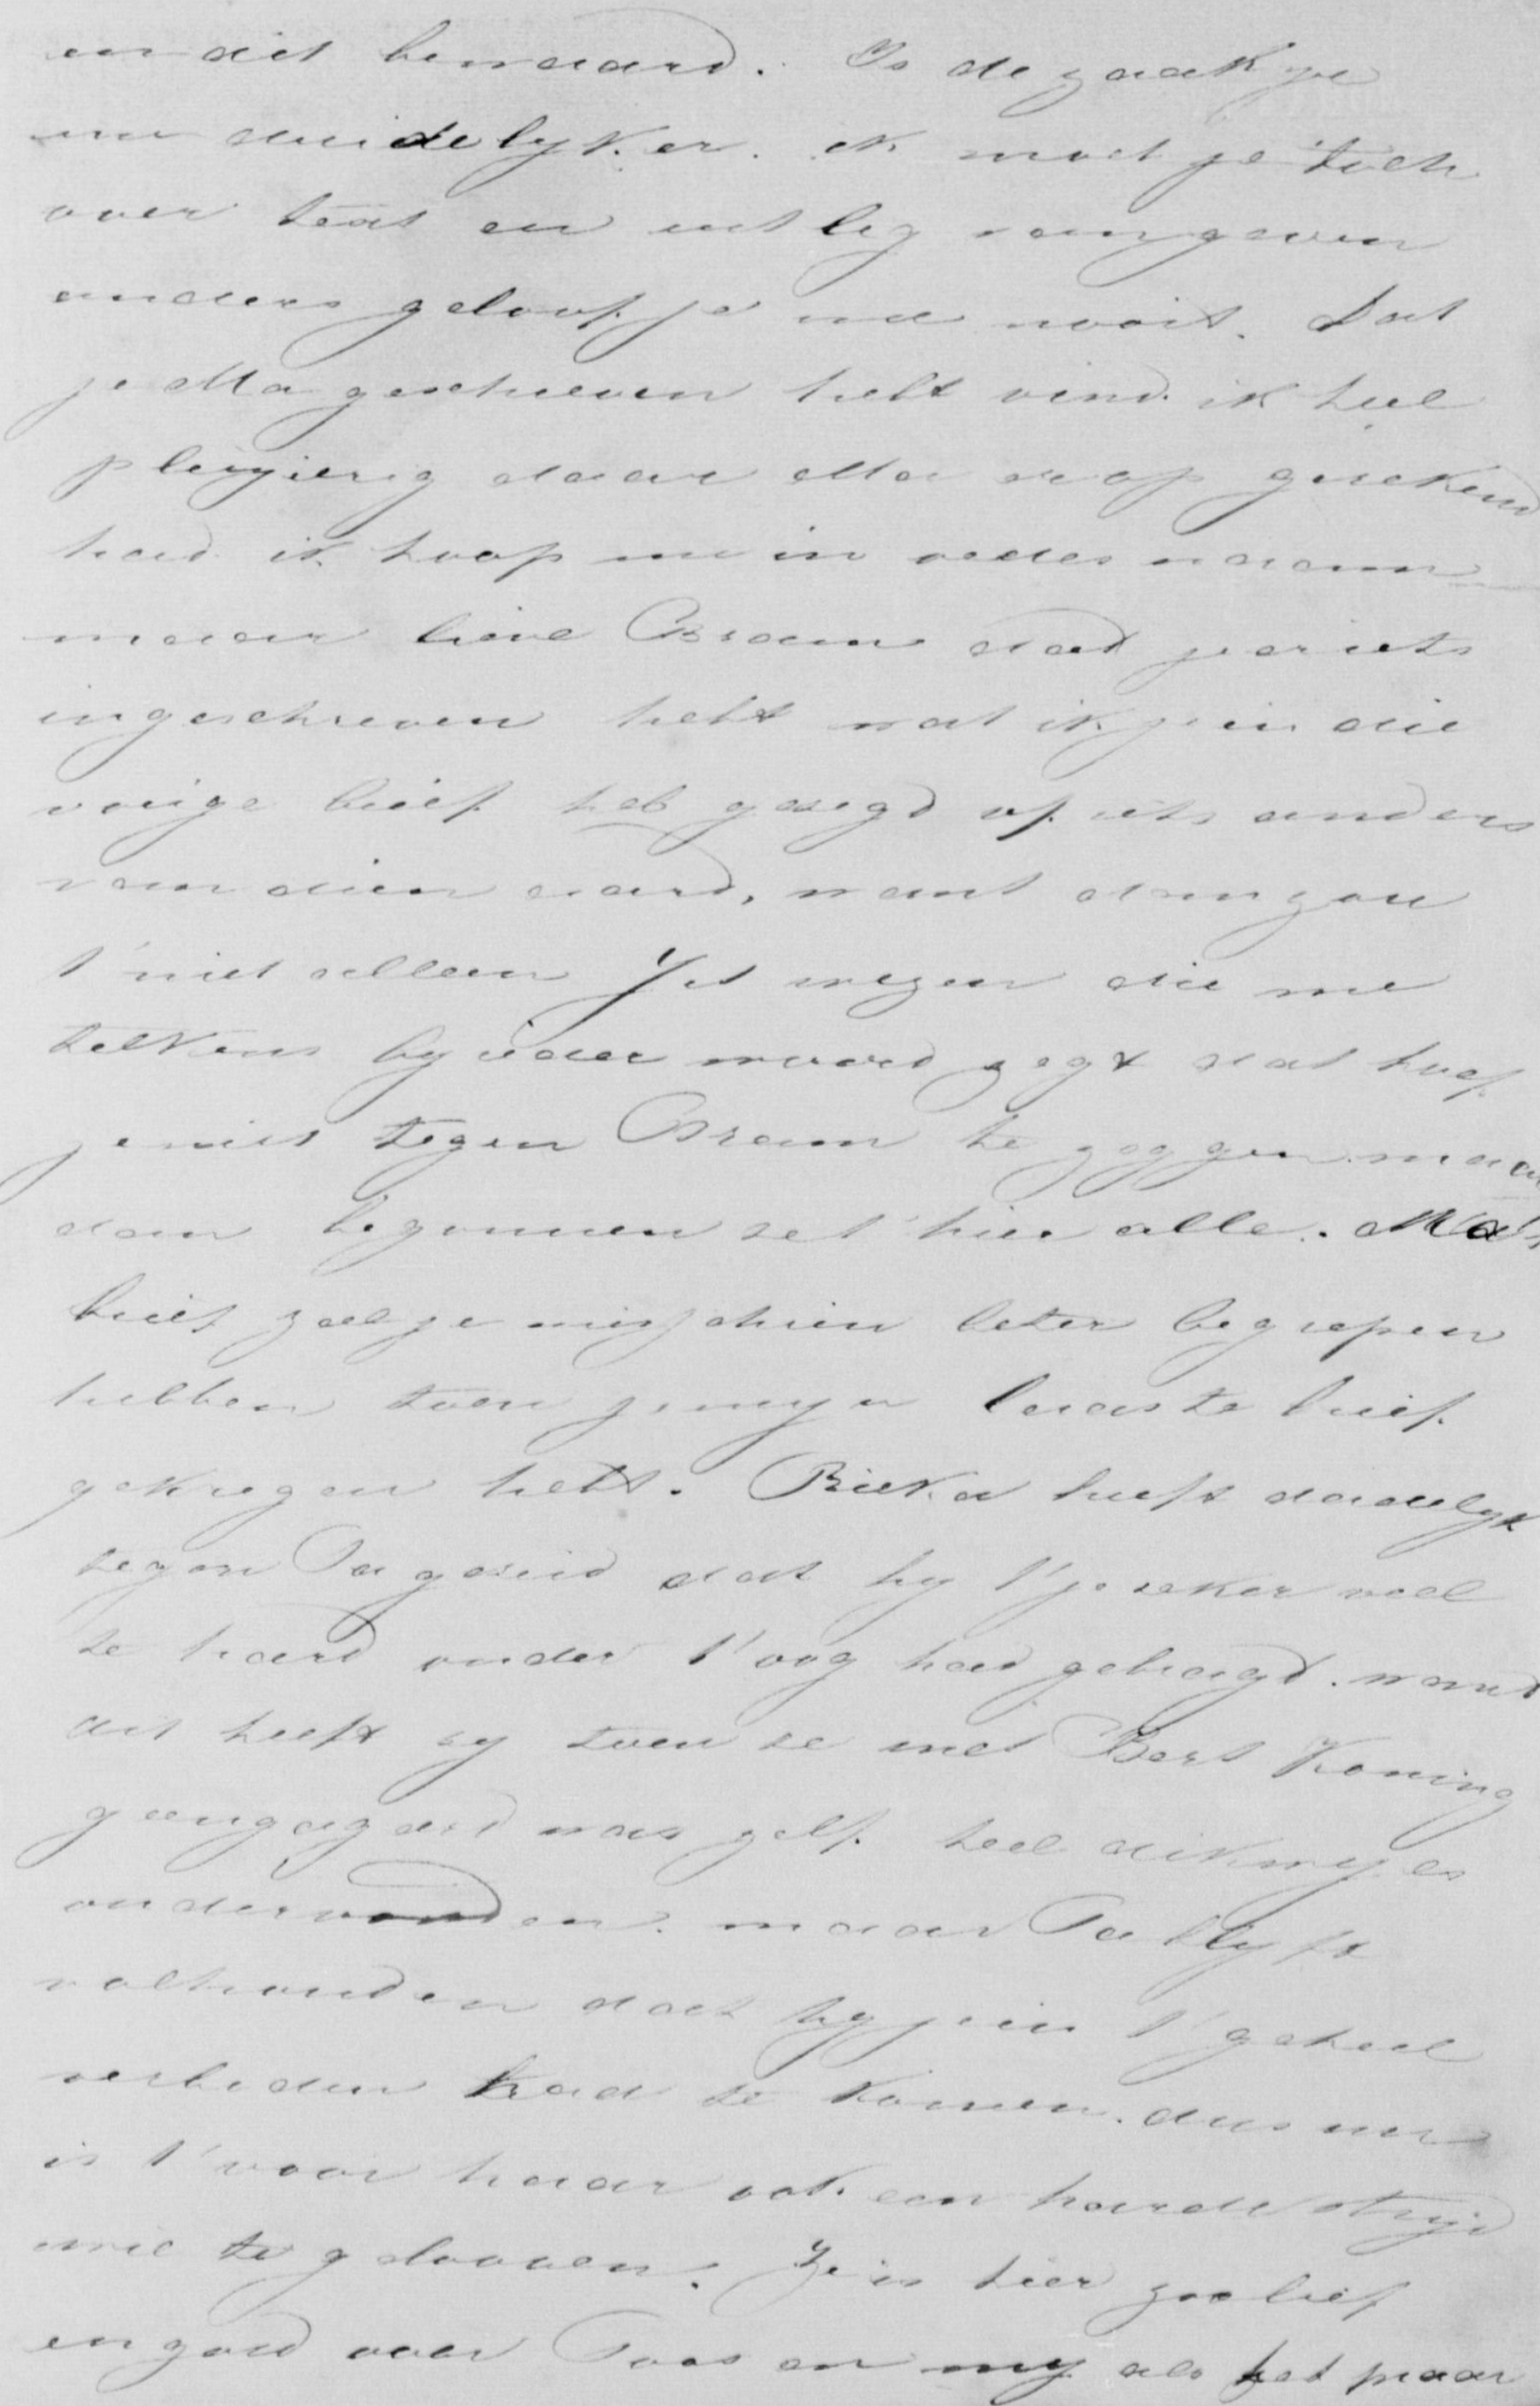 en dit bewaard. Is de zaak je
nu duidelyker. ik moet je toch
over text en uitleg van geven
anders geloof je me nooit. Dat
je Ma geschreven hebt vind ik heel
pleizierig daar Ma er op gerekend
had ik hoop nu in vredesnaam
maar lieve Bram dat je er iets
ingeschreven hebt wat ik je in die
vorige brief heb gezegd of iets anders
van dien aard, want dan zou
t' niet alleen Jet wezen die me
telkens by ieder woord zegt dat hoef
je niet tegen Bram te zeggen maar
dan begonnen ze t' hier alle. Ma's
brief zal je misschien beter begrepen
hebben toen je myn laaste brief
gekregen hebt. Rieka heeft dadelyk
tegen Pa gezeid dat hy t' je zeker veel
te hard onder t' oog had gebragt. want
dit heeft zy toen ze met Bert Koning
geengageerd was zelf heel dikwyls
ondervonden. maar Pa blyft
volhouden dat hy je in t' geheel
verboden had te komen. dus nu
is t' voor haar ook een harde stryd
wie te gelooven. Ze is hier zoo lief
en goed voor Toos en my als het maar